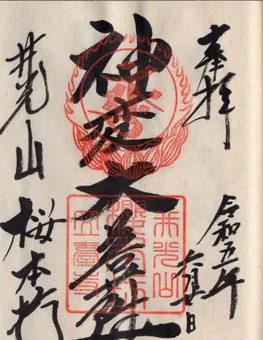 奉拝
令和五年
神変大菩薩
井光山
桜本坊